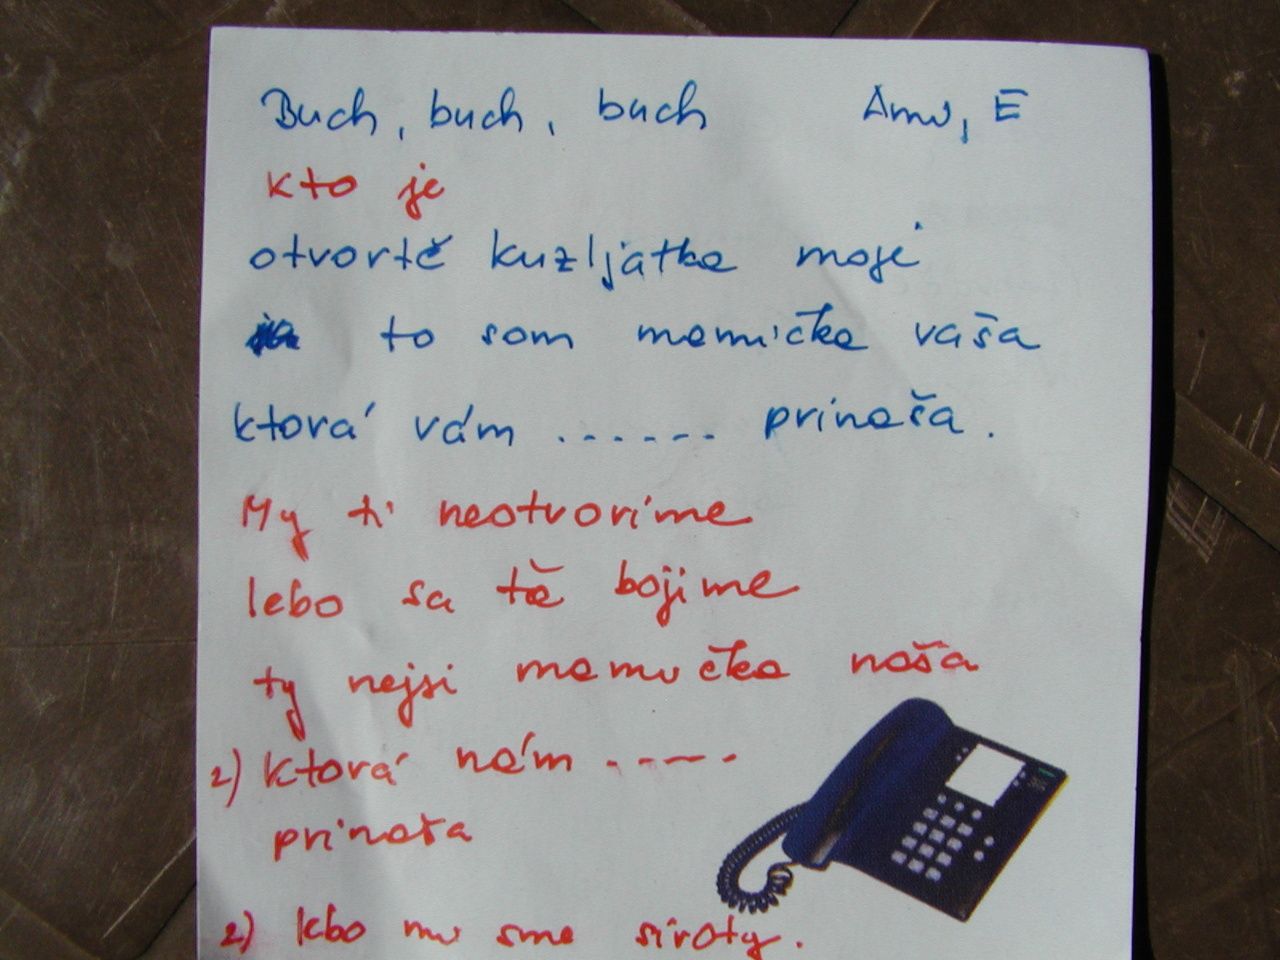 Buch, buch, buch Ami, E
kto je
otvortě kuzljatka moje
to som mamička vaša
ktorá vám ...... prinaša.
My ti neotvoríme
lebo sa tě bojime
ty nejsi mamička naša
1) ktorá nám .----.
prinaša
2) lebo mi sme siroty.